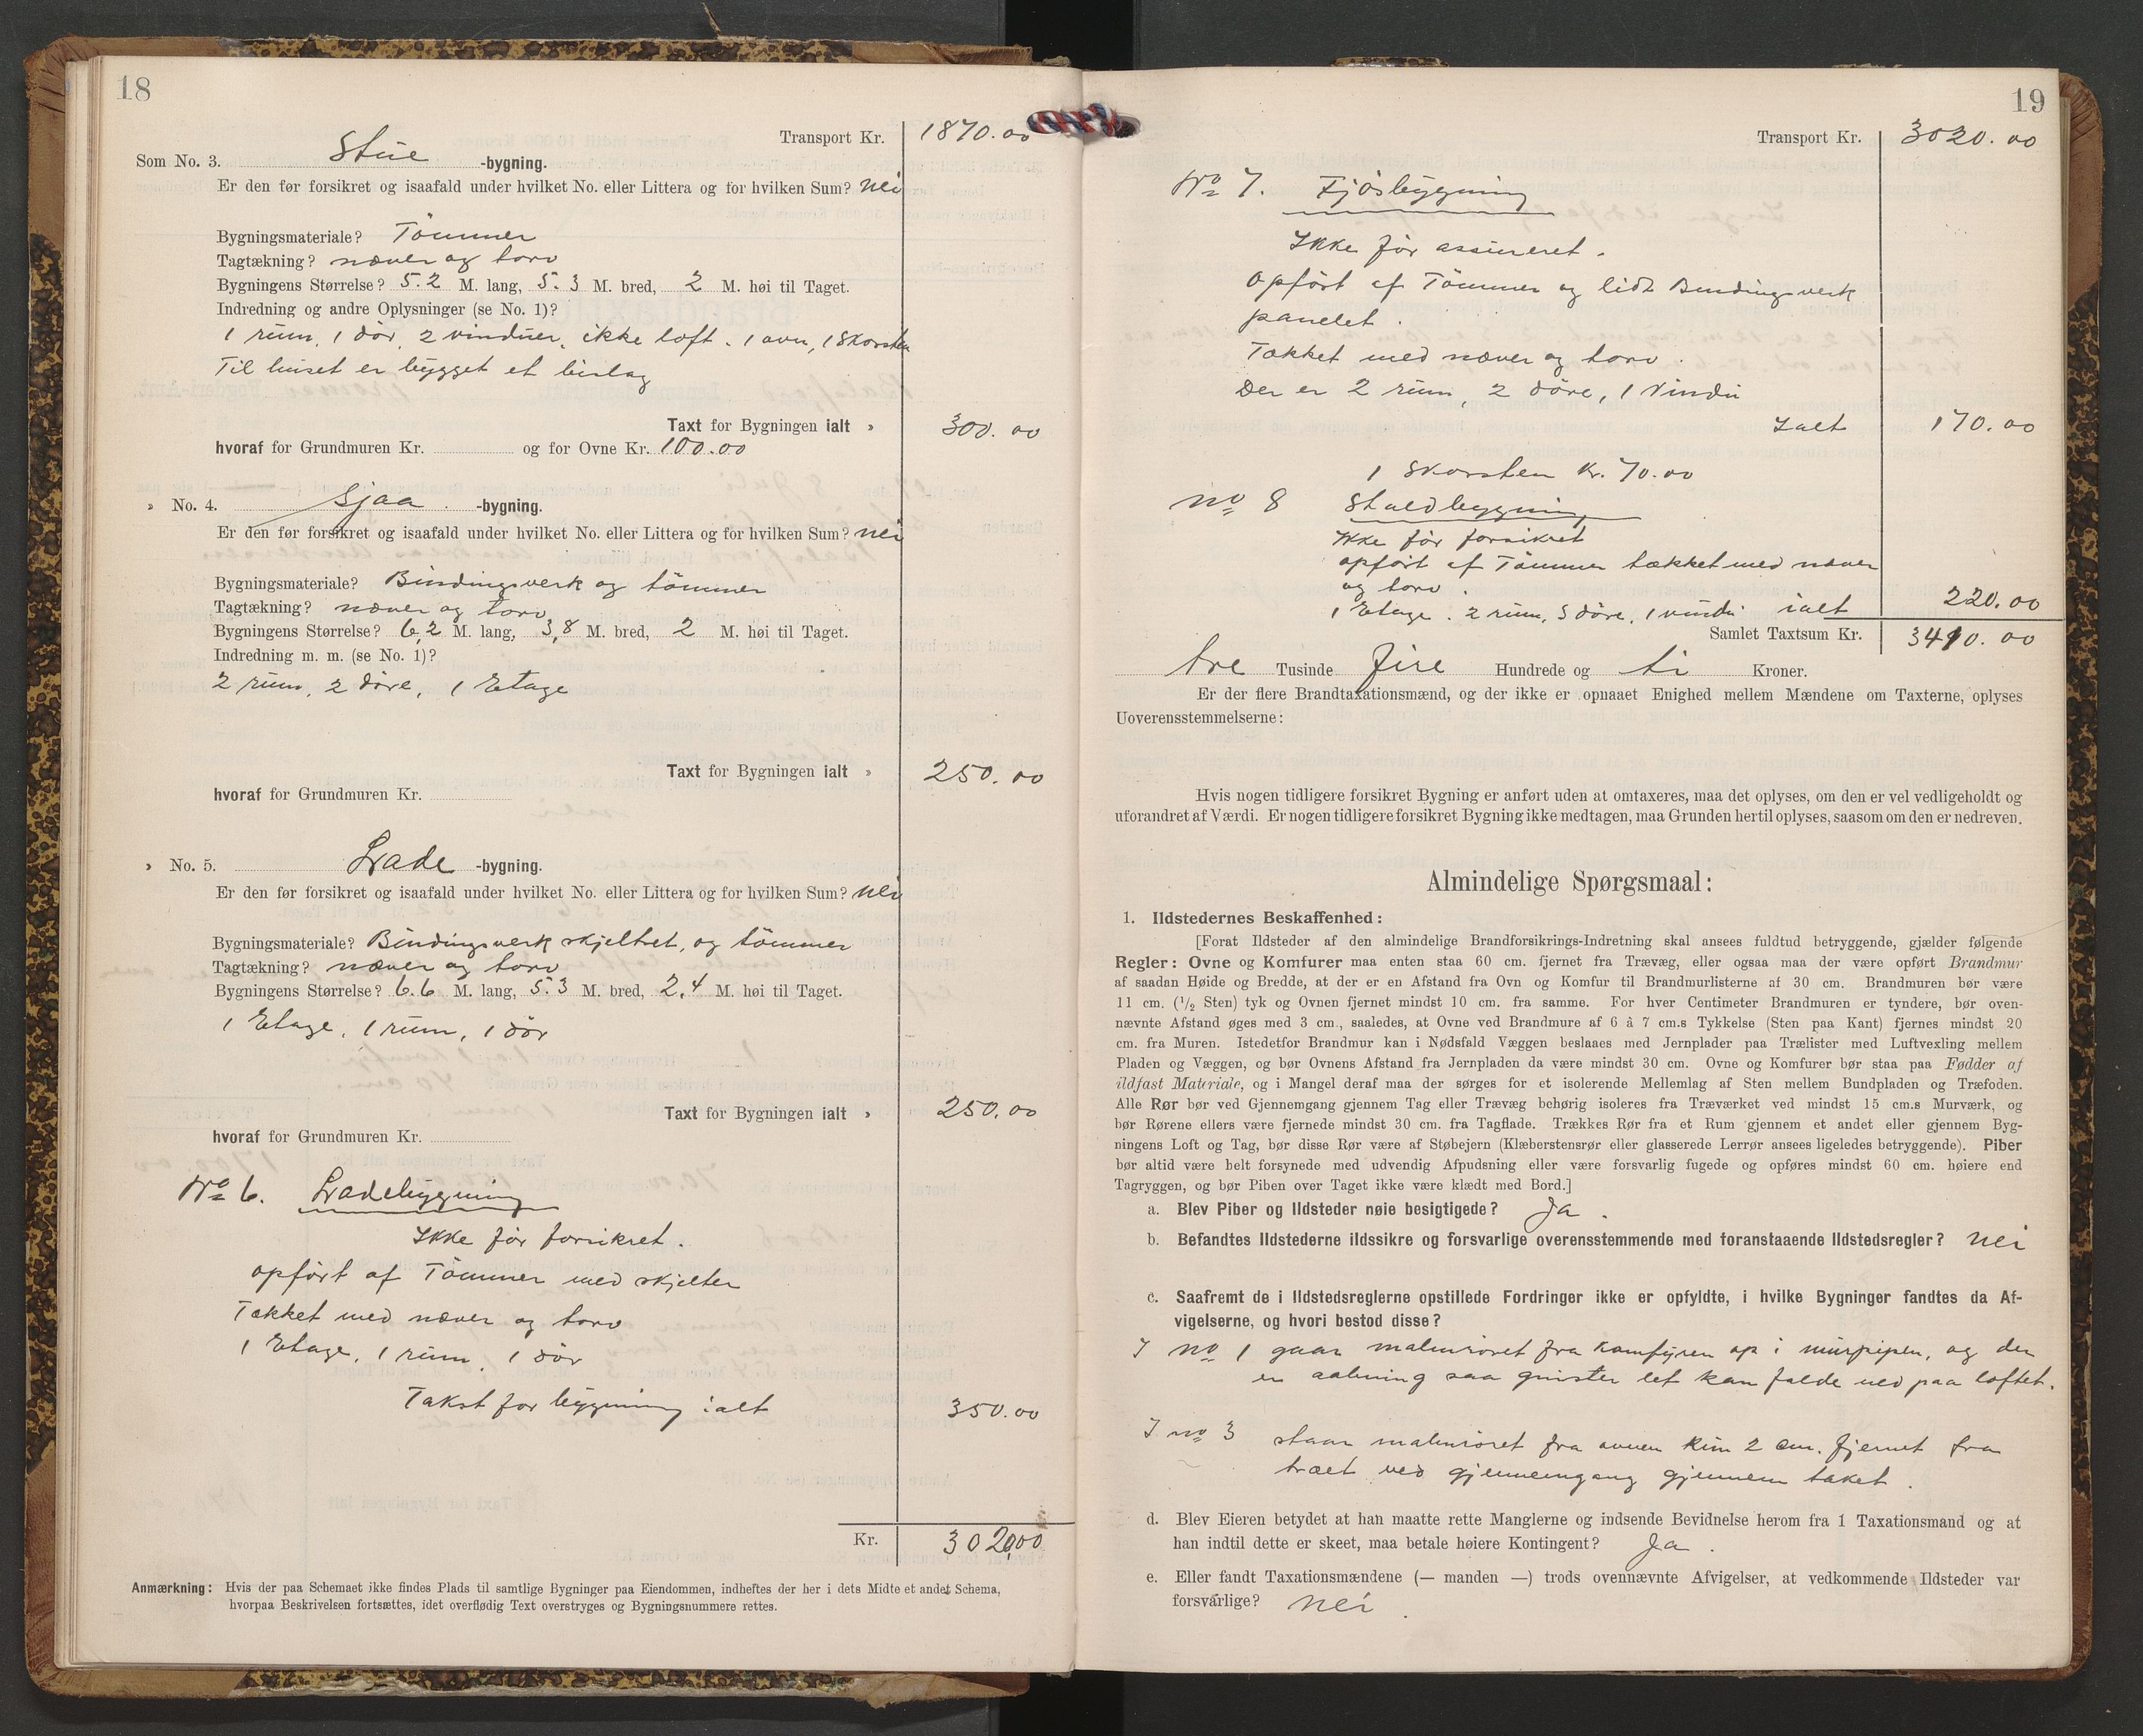 18
Transport Kr. 1870.00
Som No. 3. Stue -bygning.
Er den før forsikret og isaafald under hvilket No. eller Littera og for hvilken Sum? nei
Bygningsmateriale? Tømmer
Tagtækning? næver og torv
Bygningens Størrelse? 5.2 M. lang, 5.3 M. bred, 2 M. høi til Taget.
Indredning og andre Oplysninger (se No. 1)?
1 rum, 1 dør, 2 vinduer, ikke loft. 1 ovn, 1 Skorsten
Til huset er bygget et bislag
Taxt for Bygningen ialt » 300.00
hvoraf for Grundmuren Kr. og for Ovne Kr. 100.00
» No. 4. Sjaa -bygning.
Er den før forsikret og isaafald under hvilket No. eller Littera og for hvilken Sum? nei
Bygningsmateriale? Bindingsverk og tømmer
Tagtækning? næver og torv
Bygningens Størrelse? 6,2 M. lang, 3,8 M. bred, 2 M. høi til Taget.
Indredning m. m. (se No. 1)?
2 rum, 2 døre, 1 Etage
Taxt for Bygningen ialt » 250.00
hvoraf for Grundmuren Kr.
» No. 5. Lade -bygning.
Er den før forsikret og isaafald under hvilket No. eller Littera og for hvilken Sum? nei
Bygningsmateriale? Bindingsverk skjeltret, og tømmer
Tagtækning? næver og torv
Bygningens Størrelse? 6.6 M. lang, 5.3 M. bred, 2,4 M. høi til Taget.
1 Etage, 1 rum, 1 dør
Taxt for Bygningen ialt » 250.00
hvoraf for Grundmuren Kr.
No 6. Ladebygning
Ikke før forsikret.
opført af Tømmer med skjelter
Tækket med næver og torv
1 Etage, 1 rum, 1 dør
Takst for bygning ialt 350.00
Kr. 3020.00
Anmærkning: Hvis der paa Schemaet ikke findes Plads til samtlige Bygninger paa Eiendommen, indheftes der her i dets Midte et andet Schema,
hvorpaa Beskrivelsen fortsættes, idet overflødig Text overstryges og Bygningsnummere rettes.
19
Transport Kr. 3020.00
No 7. Fjøsbygning
Ikke før assureret.
Opført af Tømmer og lidt Bindingsverk
panelet.
Tækket med næver og torv.
Der er 2 rum, 2 døre, 1 Vindu
Ialt 170.00
1 Skorsten Kr. 70.00
No 8 Staldbygning
Ikke før forsikret
opført af Tømmer tækket med næver
og torv.
1 Etage. 2 rum, 3 døre, 1 vindu ialt 220.00
Samlet Taxtsum Kr. 3410.00
tre Tusinde fire Hundrede og ti Kroner.
Er der flere Brandtaxationsmænd, og der ikke er opnaaet Enighed mellem Mændene om Taxterne, oplyses
Uoverensstemmelserne:
Hvis nogen tidligere forsikret Bygning er anført uden at omtaxeres, maa det oplyses, om den er vel vedligeholdt og
uforandret af Værdi. Er nogen tidligere forsikret Bygning ikke medtagen, maa Grunden hertil oplyses, saasom om den er nedreven.
Almindelige Spørgsmaal:
1. Ildstedernes Beskaffenhed:
[Forat Ildsteder af den almindelige Brandforsikrings-Indretning skal ansees fuldtud betryggende, gjælder følgende
Regler: Ovne og Komfurer maa enten staa 60 cm. fjernet fra Trævæg, eller ogsaa maa der være opført Brandmur
af saadan Høide og Bredde, at der er en Afstand fra Ovn og Komfur til Brandmurlisterne af 30 cm. Brandmuren bør være
11 cm. (1/2 Sten) tyk og Ovnen fjernet mindst 10 cm. fra samme. For hver Centimeter Brandmuren er tyndere, bør oven-
nævnte Afstand øges med 3 cm., saaledes, at Ovne ved Brandmure af 6 à 7 cm.s Tykkelse (Sten paa Kant) fjernes mindst 20
cm. fra Muren. Istedetfor Brandmur kan i Nødsfald Væggen beslaaes med Jernplader paa Trælister med Luftvexling mellem
Pladen og Væggen, og bør Ovnens Afstand fra Jernpladen da være mindst 30 cm. Ovne og Komfurer bør staa paa Fødder af
ildfast Materiale, og i Mangel deraf maa der sørges for et isolerende Mellemlag af Sten mellem Bundpladen og Træfoden.
Alle Rør bør ved Gjennemgang gjennem Tag eller Trævæg behørig isoleres fra Træværket ved mindst 15 cm.s Murværk, og
bør Rørene ellers være fjernede mindst 30 cm. fra Tagflade. Trækkes Rør fra et Rum gjennem et andet eller gjennem Byg-
ningens Loft og Tag, bør disse Rør være af Støbejern (Klæberstensrør eller glasserede Lerrør ansees ligeledes betryggende). Piber
bør altid være helt forsynede med udvendig Afpudsning eller være forsvarlig fugede og opføres mindst 60 cm. høiere end
Tagryggen, og bør Piben over Taget ikke være klædt med Bord.]
a. Blev Piber og Ildsteder nøie besigtigede? Ja.
b. Befandtes Ildstederne ildssikre og forsvarlige overensstemmende med foranstaaende Ildstedsregler? nei
c. Saafremt de i Ildstedsreglerne opstillede Fordringer ikke er opfyldte, i hvilke Bygninger fandtes da Af-
vigelserne, og hvori bestod disse?
I no 1 gaar malmrøret fra komfyren op i murpipen, og der
er aabning saa gnister let kan falde ned paa loftet.
I no 3 staar malmrøret fra ovnen kun 2 cm. fjernet fra
træet ved gjennemgang gjennem taket.
d. Blev Eieren betydet at han maatte rette Manglerne og indsende Bevidnelse herom fra 1 Taxationsmand og at
han indtil dette er skeet, maa betale høiere Kontingent? Ja.
e. Eller fandt Taxationsmændene (— manden —) trods ovennævnte Afvigelser, at vedkommende Ildsteder var
forsvarlige? nei.